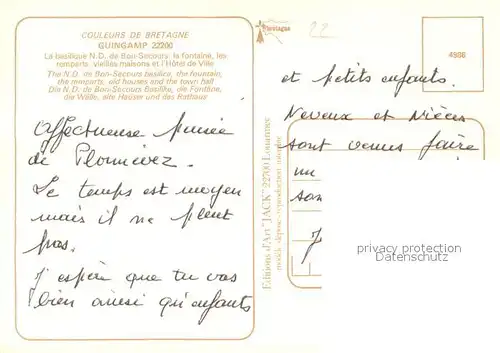 COULEURS DE BRETAGNE
GUINGAMP 22200
La basilique N.D. de Bon-Secours, la fontaine, les
remparts, vieilles maisons et l'Hôtel de Ville
The N.D. de Bon-Secours basilica, the fountain,
the remparts, old houses and the town hall
Die N.D. de Bon-Secours Basilika, die Fontäne,
die Wälle, alte Häuser und das Rathaus
Affectueuse pensée
de Plounévez.
Le temps est moyen
mais il ne pleut
pas.
J'espère que tu vas
bien ainsi qu'enfants
Editions d'Art "JACK" 22700 Louannec
modèle déposé - reproduction interdite
Bretagne
22
4986
et petits enfants.
Neveux et Nièces
sont venus faire
un
J
privacy protection
Datenschutz